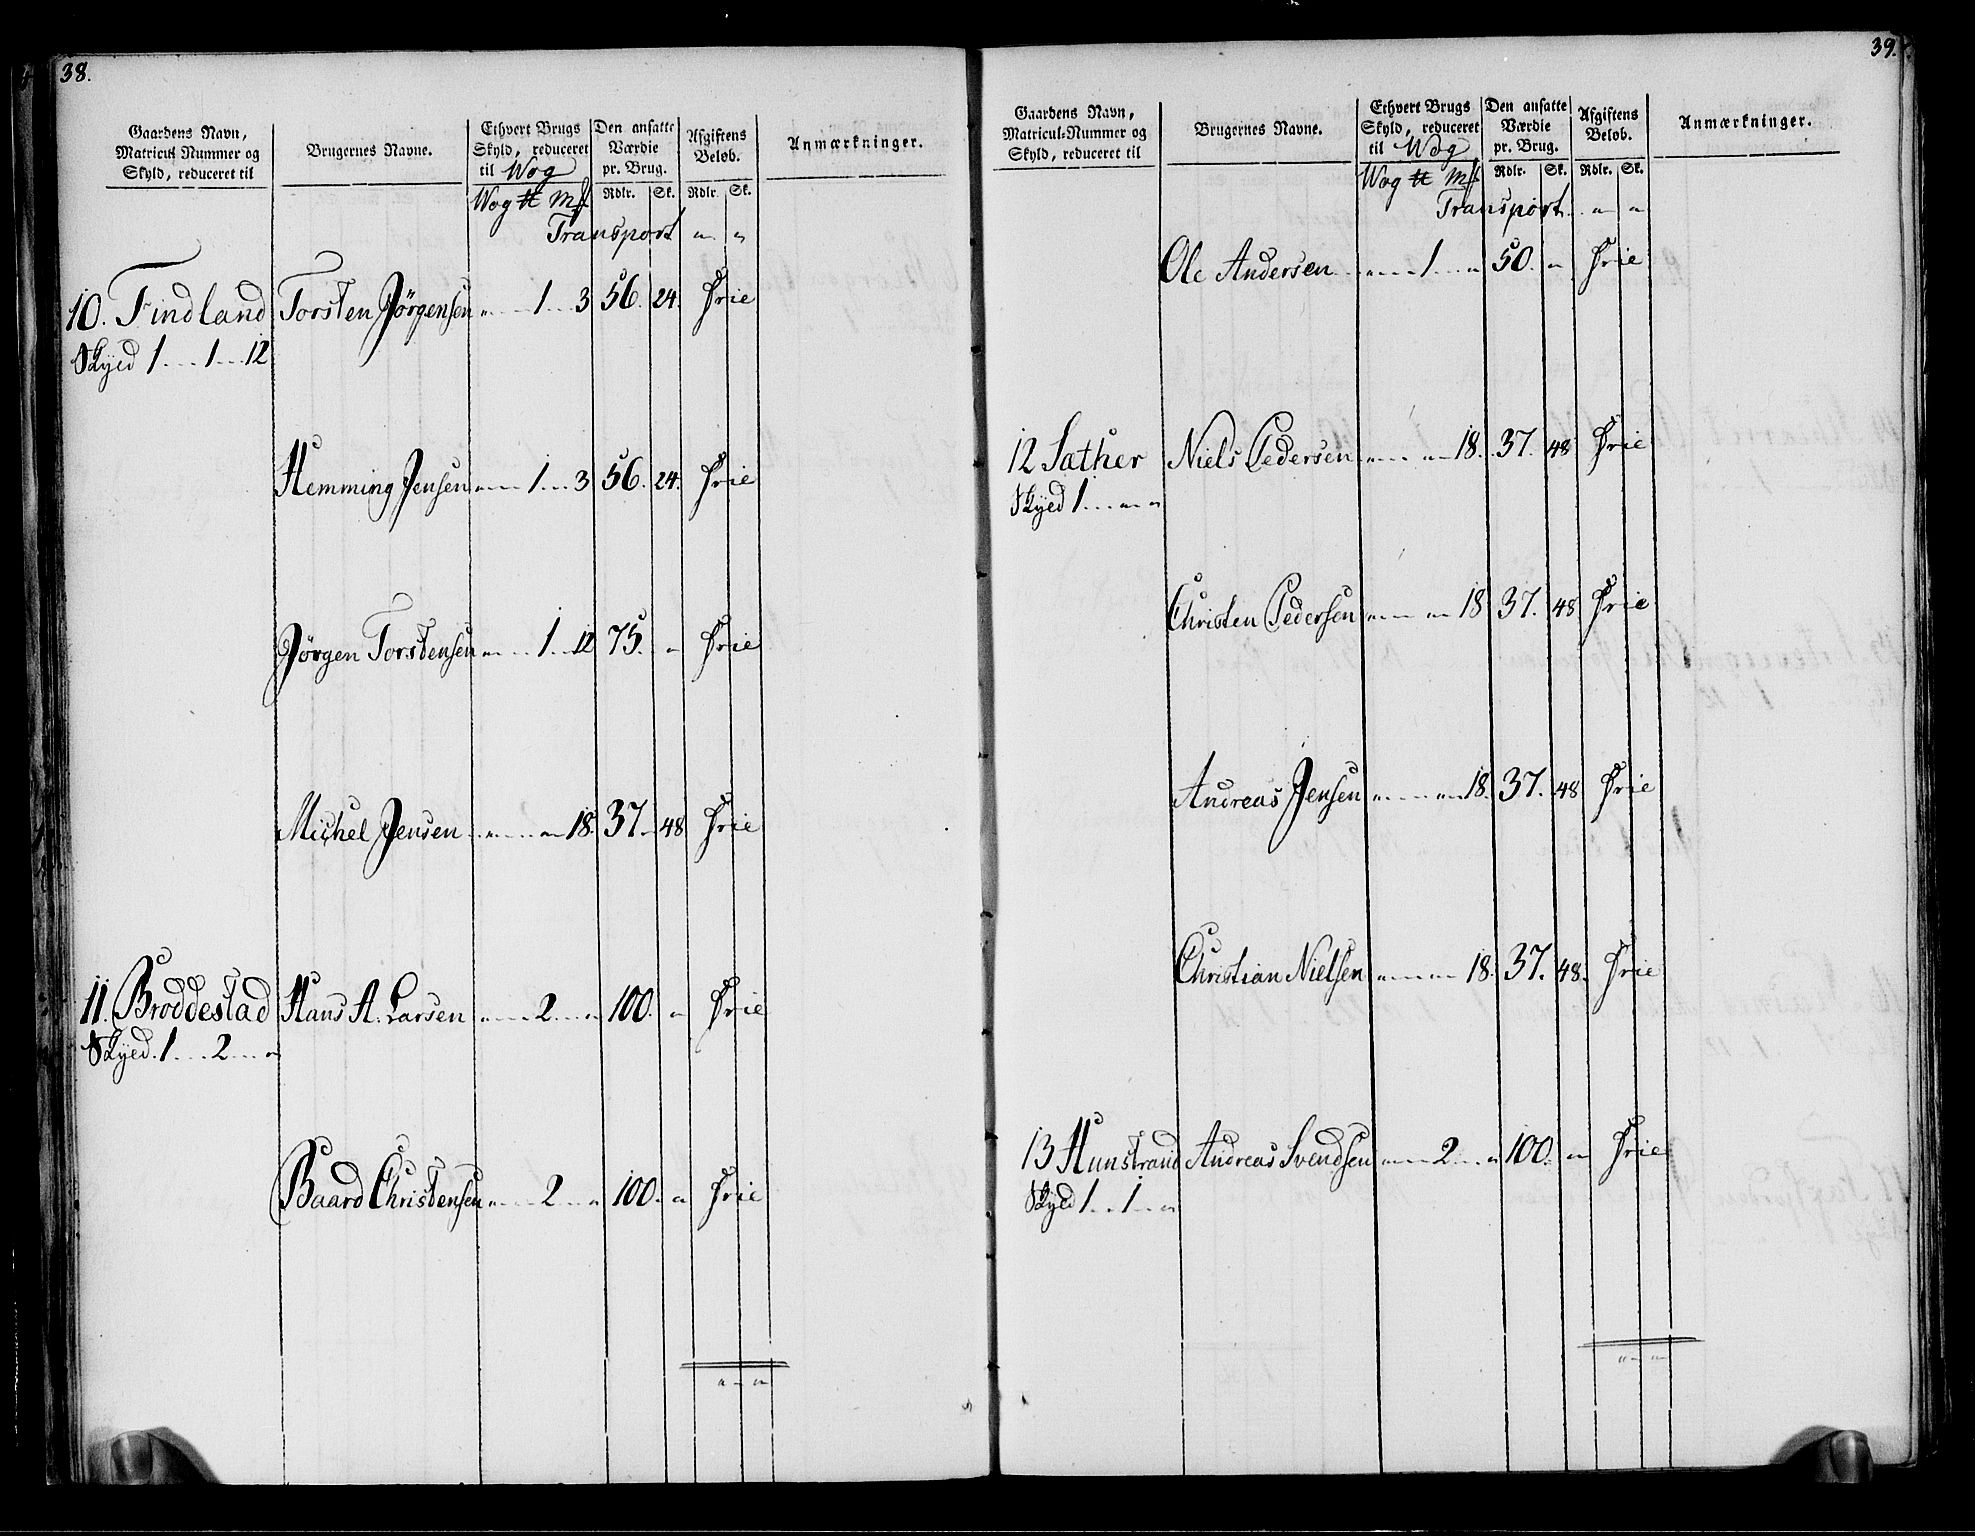 38.
Gaardens Navn, Matricul Nummer og Skyld, reduceret til
Brugernes Navne.
Ethvert Brugs Skyld, reduceret til Wog
Den ansatte Værdie pr. Brug.
Afgiftens Beløb.
Anmærkninger.
Wog ℔ Mk Rdlr. Sk. Rdlr. Sk.
Transport " "
10. Findland Torsten Jörgensen " 1 3 56. 24. Frie
Skyld 1 1 12
Hemming Jensen " 1 3 56. 24. Frie
Jörgen Torstensen " 1 12 75. " Frie
Michel Jensen " " 18. 37. 48 Frie
11. Broddestad Hans A. Larsen " 2 " 100. " Frie
Skyld. 1 2 "
Baard Christensen " 2 " 100. " Frie
" "
39.
Gaardens Navn, Matricul-Nummer og Skyld, reduceret til
Brugernes Navne.
Ethvert Brugs Skyld, reduceret til Wog
Den ansatte Værdie pr. Brug.
Afgiftens Beløb.
Anmærkninger.
Wog ℔ Mk Rdlr. Sk. Rdlr. Sk.
Transport " "
Ole Andersen " 1 " 50. " Frie
12 Sæther Niels Pedersen " " 18. 37. 48 Frie
Skyld 1 " "
Christen Pedersen " " 18 37. 48 Frie
Andreas Jensen " " 18. 37. 48 Frie
Christian Nielsen " " 18. 37. 48. Frie
13 Hunstrand Andreas Svendsen " 2 " 100. " Frie
Skyld 1 1 "
" "